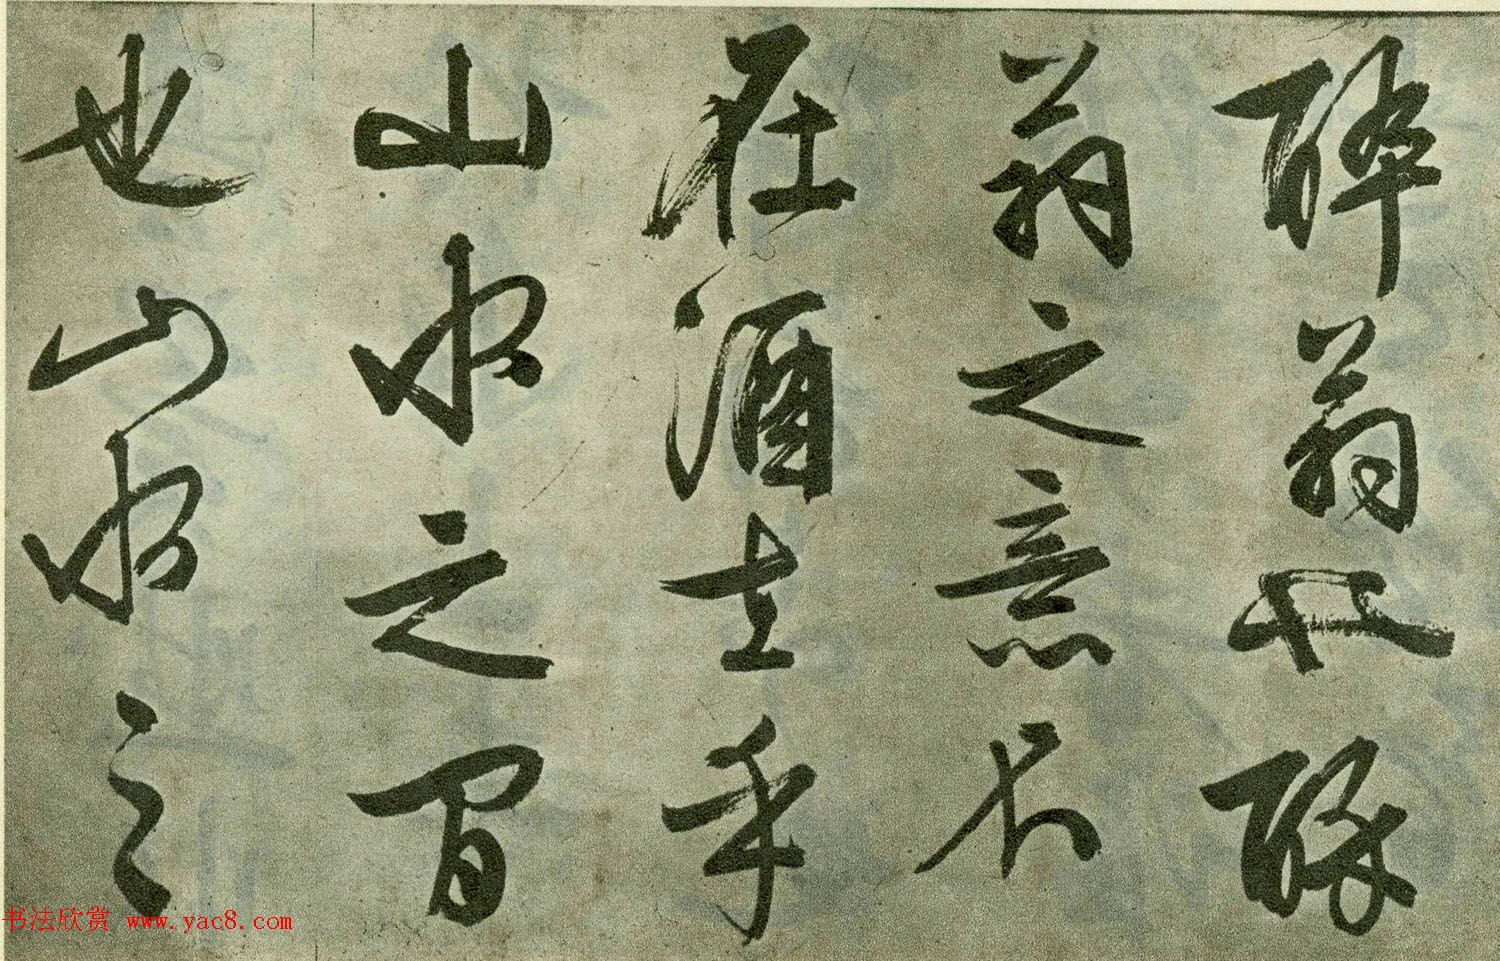 醉翁也醉
翁之意不
在酒在乎
山水之間
也山水之
书法欣赏 www.yac8.com